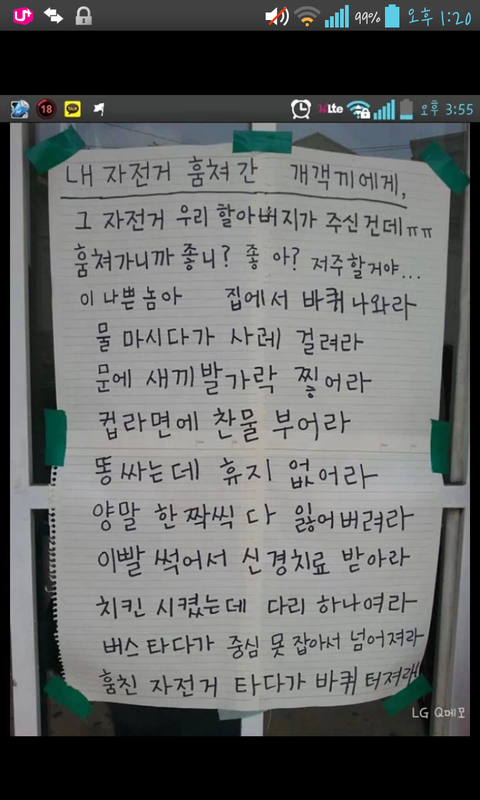 U+ 99% 오후 1:20
18 TALK LTE 오후 3:55
내 자전거 훔쳐간 개객끼에게,
그 자전거 우리 할아버지가 주신건데ㅠㅠ
훔쳐가니까 좋니? 좋아? 저주할거야...
이 나쁜놈아 집에서 바퀴 나와라
물 마시다가 사레 걸려라
문에 새끼발가락 찧어라
컵라면에 찬물 부어라
똥싸는데 휴지 없어라
양말 한짝씩 다 잃어버려라
이빨 썩어서 신경치료 받아라
치킨 시켰는데 다리 하나여라
버스 타다가 중심 못 잡아서 넘어져라
훔친 자전거 타다가 바퀴 터져라
LG Q메모